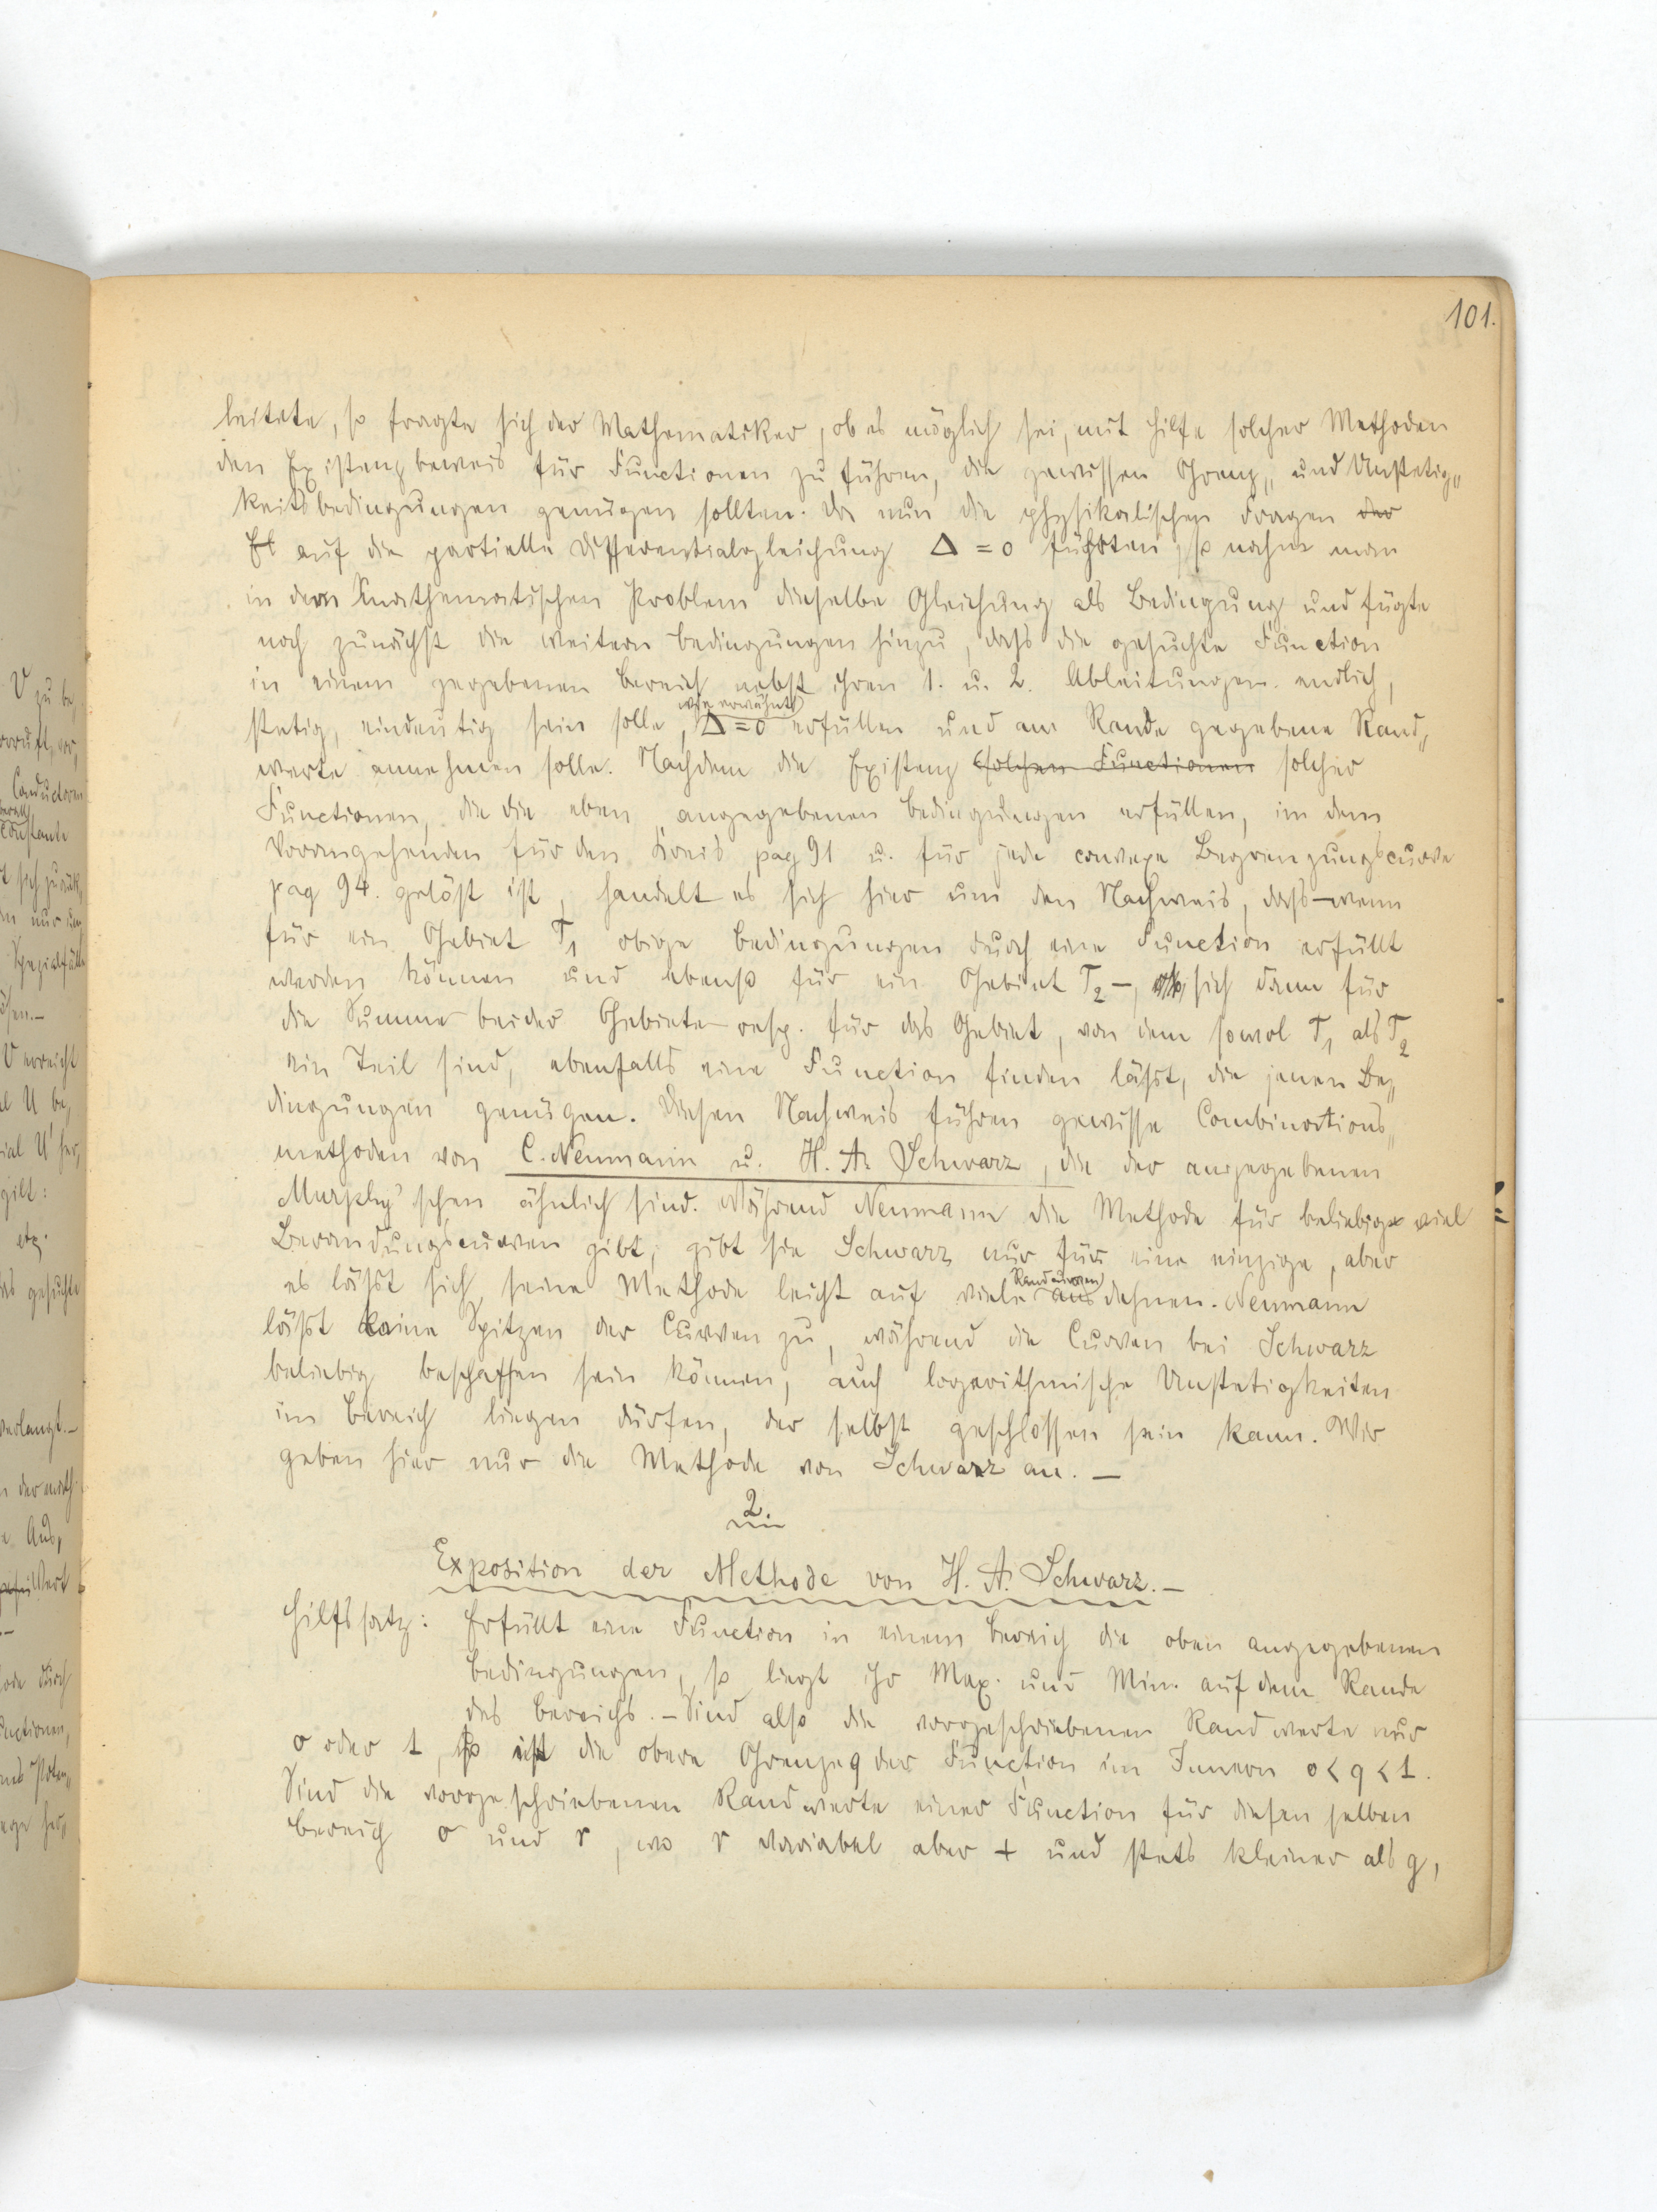 101.
leitete, so fragte sich der Mathematiker, ob es möglich sei, mit Hilfe solcher Methoden
den Existenzbeweis für Functionen zu führen, die gewissen Grenz„ und Unstetig„
keitsbedingungen genügen sollten. Da nun die physikalischen Fragen der
Et auf die partielle Differentialgleichung Δ = 0 führten, so nahm man
in dem mathematischen Problem dieselbe Gleichung als Bedingung und fügte
noch zunächst die weitern Bedingungen hinzu, dass die gesuchte Function
in einem gegebenen Bereich nebst ihren 1. u. 2. Ableitungen endlich,
wie erwähnt
stetig, eindeutig sein solle, Δ = 0 erfüllen und am Rande gegebene Rand„
werte annehmen solle. Nachdem die Existenz solchen Functionen solcher
Functionen, die die eben angegebenen Bedingungen erfüllen, im dem
Vorangehenden für den Kreis pag 91 u. für jede convexe Begrenzungscurve
pag 94. gelöst ist, handelt es sich hier um den Nachweis, dass – wenn
für ein Gebiet T₁ obige Bedingungen durch eine Function erfüllt
werden können und ebenso für ein Gebiet T₂ –, sich dann für
die Summe beider Gebiete resp. für das Gebiet, von dem sowol T₁ als T₂
ein Teil sind, ebenfalls eine Function finden lässt, die jenen Be„
dingungen genügen. Diesen Nachweis führen gewisse Combinations„
methoden von C. Neumann u. H. A. Schwarz, die der angegebenen
Murphy'schen ähnlich sind. Während Neumann die Methode für beliebige viel
Berandungscurven gibt, gibt sie Schwarz nur für eine einzige, aber
Randcurven
es lässt sich seine Methode leicht auf viele ausdehnen. Neumann
lässt keine Spitzen der Curven zu, während die Curven bei Schwarz
beliebig beschaffen sein können, auch logarithmische Unstetigkeiten
im Bereich liegen dürfen, der selbst geschlossen sein kann. Wir
geben hier nur die Methode von Schwarz an. –
2.
Exposition der Methode von H. A. Schwarz. –
Hilfssatz: Erfüllt eine Function in einem Bereich die oben angegebenen
Bedingungen, so liegt ihr Max. und Min. auf dem Rande
des Bereichs. – Sind also die vorgeschriebenen Randwerte nur
0 oder 1, so ist die obere Grenze q der Function im Innern 0 < q < 1.
Sind die vorgeschriebenen Randwerte einer Function für diesen selben
Bereich 0 und r, wo r variabel aber + und stets kleiner als g,